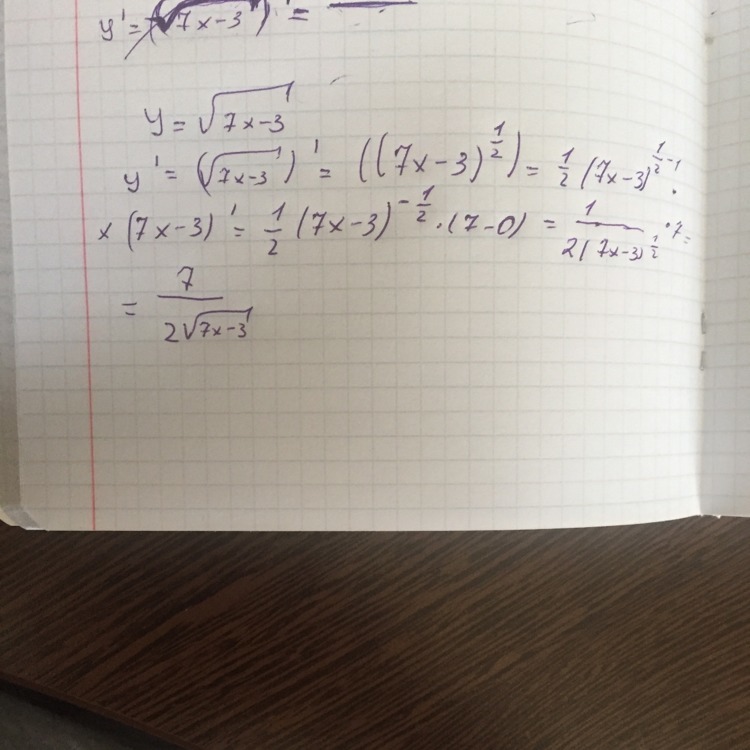 y' = (√7x-3)' =
y = √7x-3
y' = (√7x-3)' = ((7x-3)^{1/2}) = 1/2 (7x-3)^{1/2-1} ·
× (7x-3)' = 1/2 (7x-3)^{-1/2} · (7-0) = 1/2(7x-3)^{1/2} · 7 =
= 7/2√7x-3